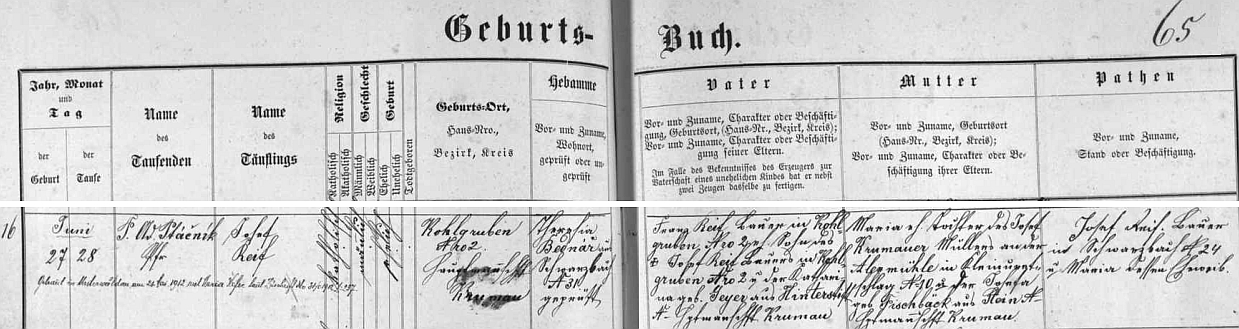 Geburts-
Buch.
65
Jahr, Monat
und
Tag
der
Geburt
der
Taufe
Name
des
Taufenden
Name
des
Täuflings
Religion
Katholisch
Akatholisch
Geschlecht
Männlich
Weiblich
Geburt
Ehelich
Unehelich
Todtgeboren
Geburts-Ort,
Haus-Nro.,
Bezirk, Kreis
Hebamme
Vor- und Zuname,
Wohnort,
geprüft oder un-
geprüft
Vater
Vor- und Zuname, Charakter oder Beschäfti-
gung, Geburtsort, (Haus-Nr., Bezirk, Kreis);
Vor- und Zuname, Charakter oder Beschäfti-
gung seiner Eltern.
Im Falle des Bekenntnisses des Erzeugers zur
Vaterschaft eines unehelichen Kindes hat er nebst
zwei Zeugen dasselbe zu fertigen.
Mutter
Vor- und Zuname, Geburtsort
(Haus-Nr., Bezirk, Kreis);
Vor- und Zuname, Charakter oder Be-
schäftigung ihrer Eltern.
Pathen
Vor- und Zuname,
Stand oder Beschäftigung.
16
Juni
27 28
P. Ad. Ptáčník
Pfr
Josef
Reif
katholisch
männlich
ehelich
Kohlgruben
Nro 2
Hauptmannschft
Krumau
Theresia
Bednář aus
Schwarzbach
N 31
geprüft
Franz Reif, Bauer in Kohl
gruben Nro 2, eh. Sohn des
Josef Reif Bauers in Kohl
gruben Nro 2 u. der Kathari
na geb. Jeyer aus Hinterstift
N - Hptmanschft Krumau
Maria eh. Tochter des Josef
Krumauer Müllers an der
in
schlag N 10, u. der Josefa
geb. Fischbäck aus Stein N
Hptmanschft Krumau.
Josef Reif, Bauer
in Schwarzbach N 24
u. Maria dessen Eheweib.